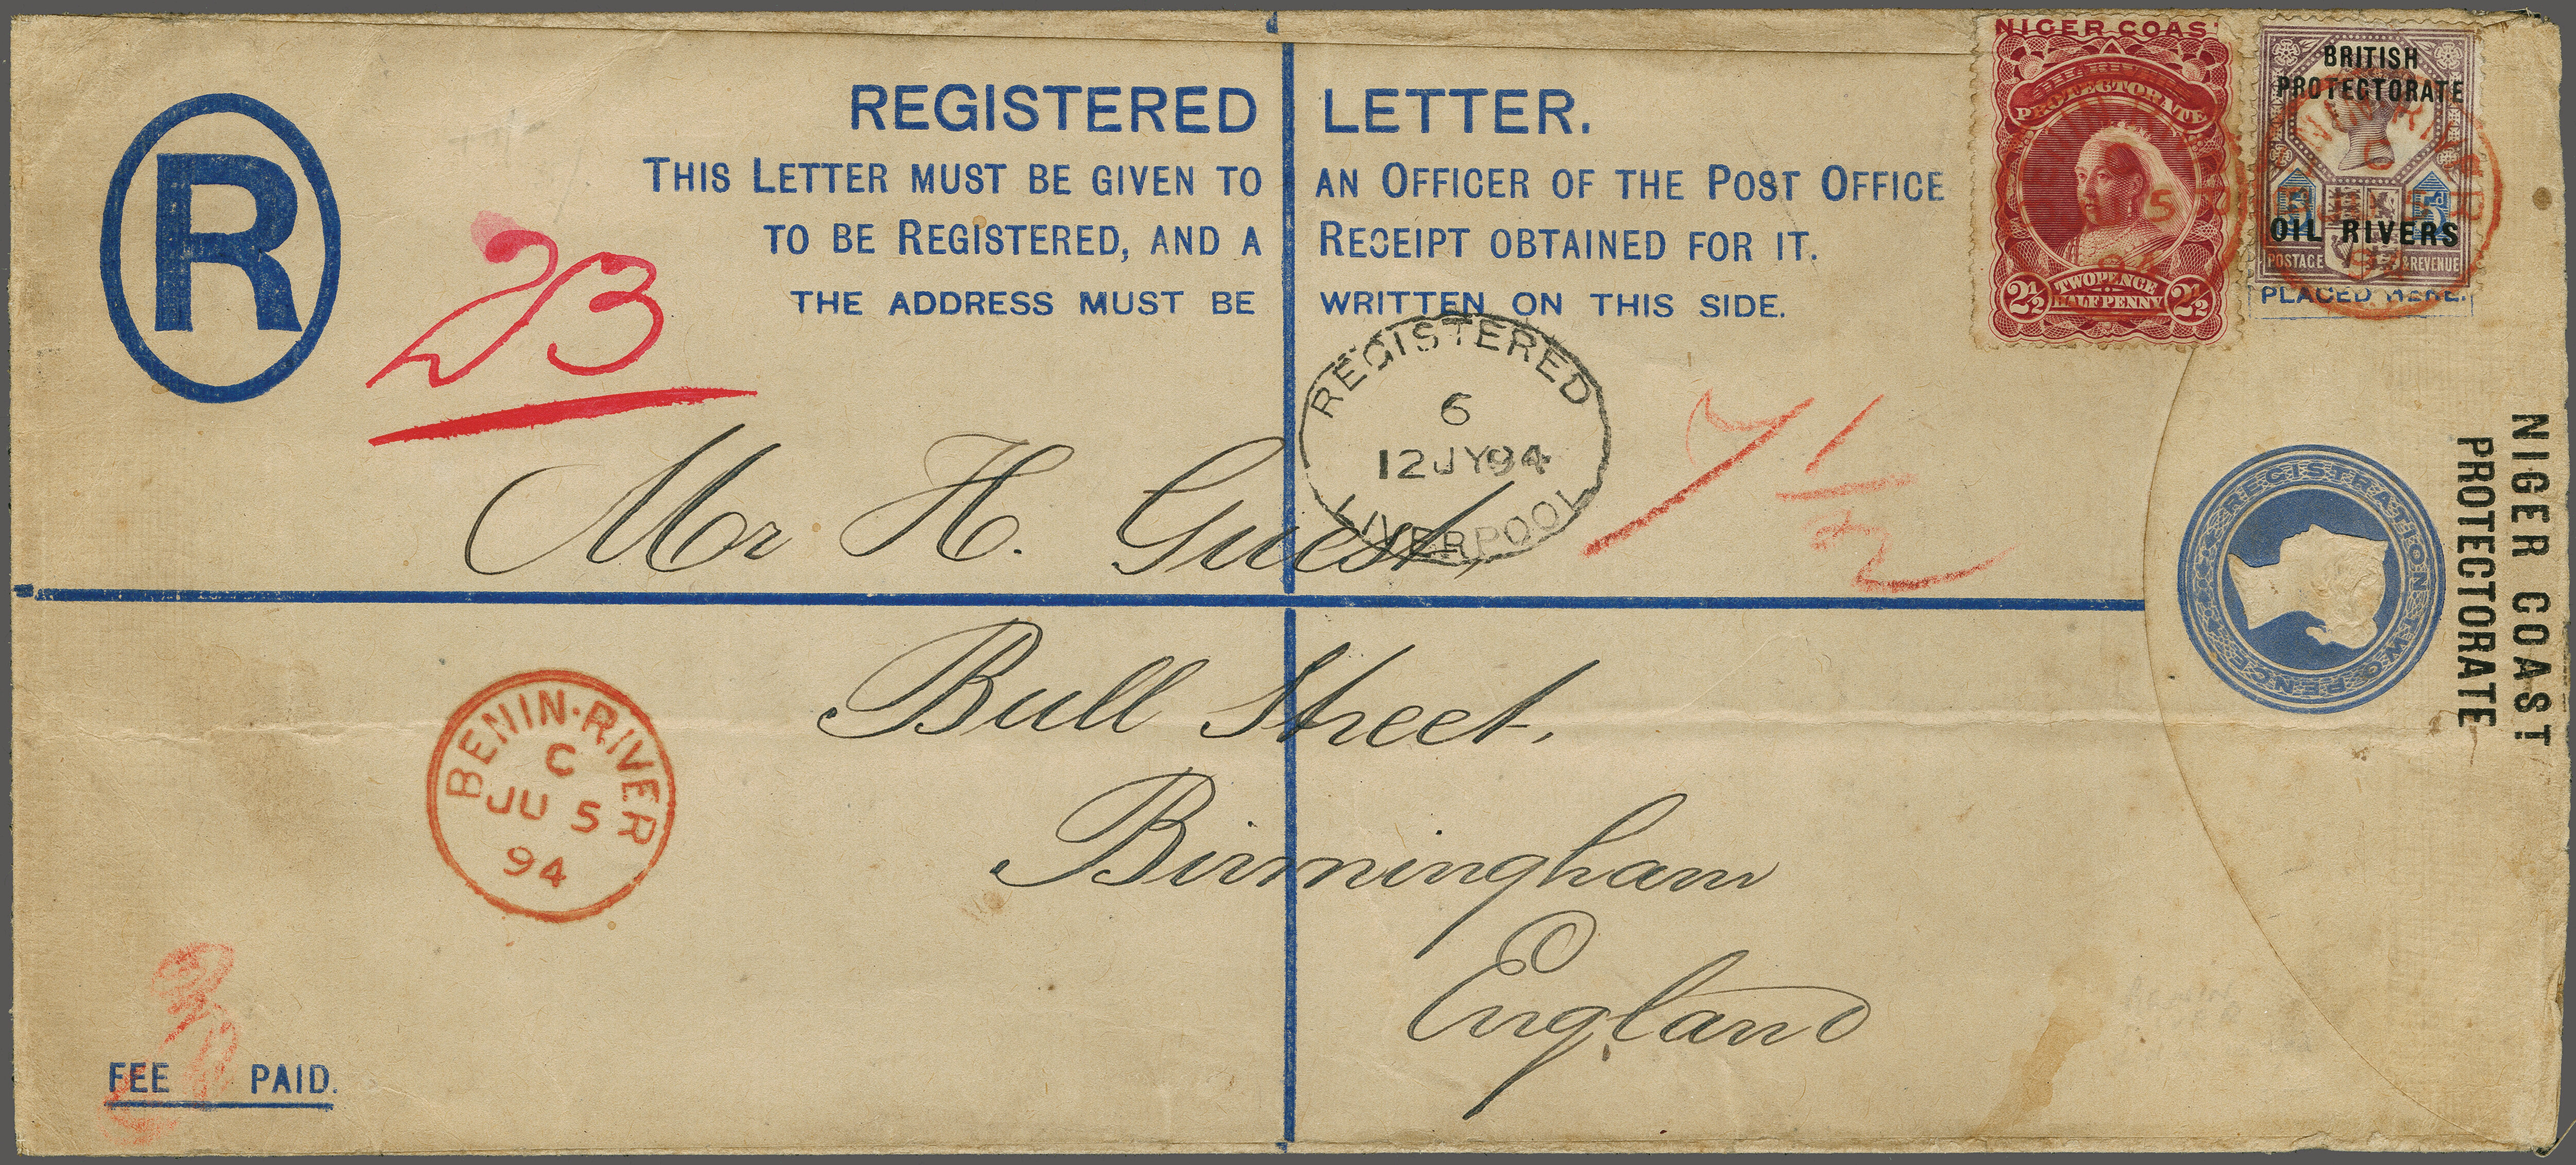 REGISTERED LETTER.
THIS LETTER MUST BE GIVEN TO AN OFFICER OF THE POST OFFICE
TO BE REGISTERED, AND A RECEIPT OBTAINED FOR IT.
THE ADDRESS MUST BE WRITTEN ON THIS SIDE.
R
23
NIGER COAS
PROTECTORATE
TWOPENCE
HALFPENNY
2½ 2½
BRITISH
PROTECTORATE
5d 5d
OIL RIVERS
POSTAGE & REVENUE
PLACED HERE.
REGISTERED
6
12 JY 94
LIVERPOOL
7½
Mr H. Guest,
Bull Street,
Birmingham
England
NIGER COAST
PROTECTORATE
REGISTRATION TWO PENCE
BENIN·RIVER
C
JU 5
94
FEE PAID.